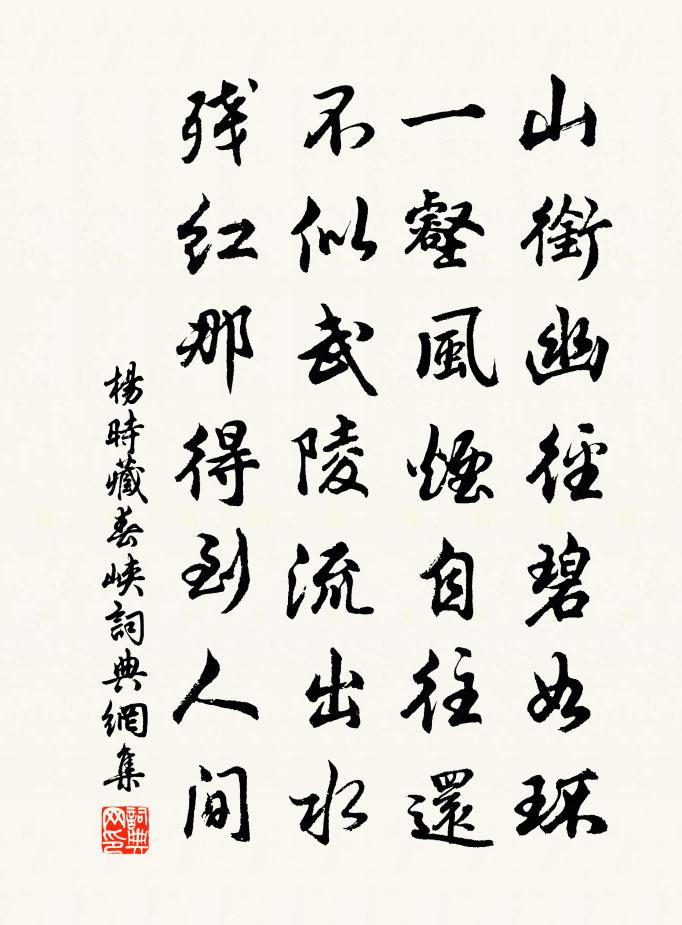 山銜幽徑碧如環
一壑風煙自往還
不似武陵流出水
残紅那得到人間
楊時藏春峽詞典網集
詞典
网印